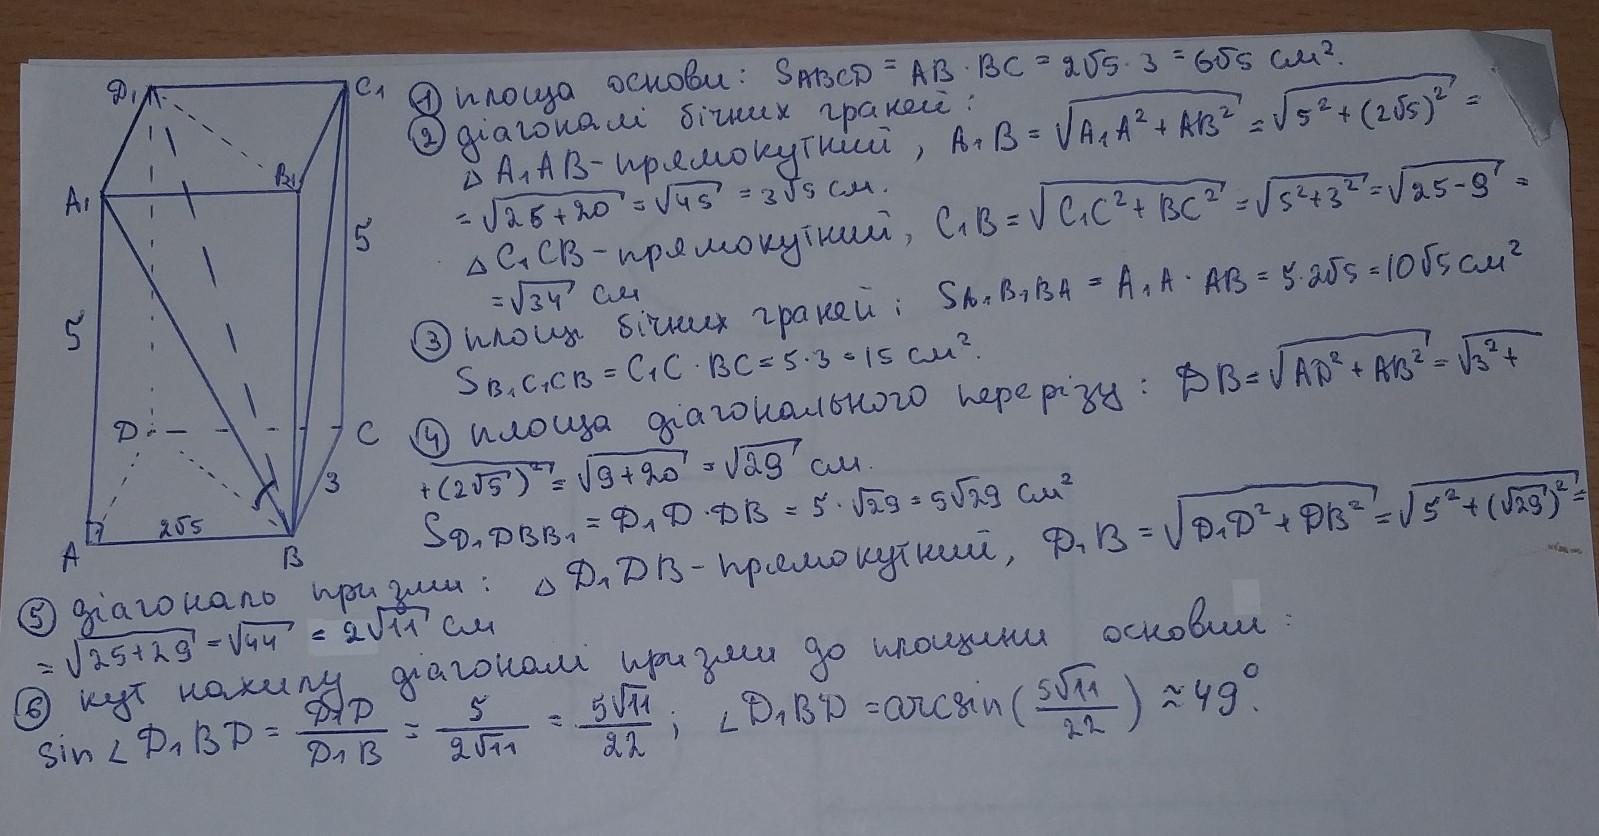 D₁ C₁
A₁ B₁
5 5
D C
3
2√5
A B
① площа основи: SABCD = AB · BC = 2√5 · 3 = 6√5 см².
② діагоналі бічних граней:
△ A₁AB - прямокутний, A₁B = √(A₁A² + AB²) = √(5² + (2√5)²) =
= √(25+20) = √45 = 3√5 см.
△ C₁CB - прямокутний, C₁B = √(C₁C² + BC²) = √(5²+3²) = √(25-9) =
= √34 см
③ площі бічних граней: SA₁B₁BA = A₁A · AB = 5·2√5 = 10√5 см²
SB₁C₁CB = C₁C · BC = 5·3 = 15 см².
④ площа діагонального перерізу: DB = √(AD² + AB²) = √(3² +
+ (2√5)²) = √(9+20) = √29 см.
SD₁DBB₁ = D₁D · DB = 5 · √29 = 5√29 см²
⑤ діагональ призми: △ D₁DB - прямокутний, D₁B = √(D₁D² + DB²) = √(5² + (√29)²) =
= √(25+29) = √44 = 2√11 см
⑥ кут нахилу діагоналі призми до площини основи:
sin ∠ D₁BD = D₁D/D₁B = 5/2√11 = 5√11/22 ; ∠ D₁BD = arcsin(5√11/22) ≈ 49°.